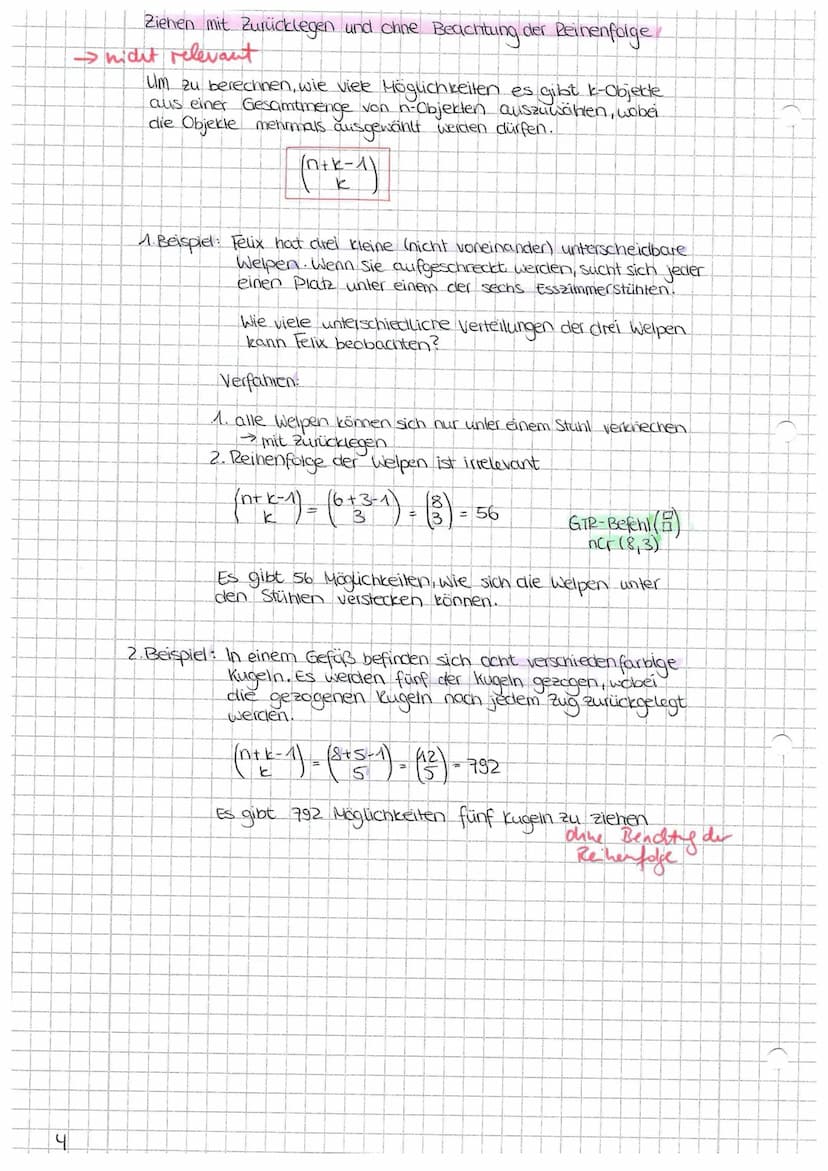 Ziehen mit Zurücklegen und ohne Beachtung der Reihenfolge
→ nicht relevant
Um zu berechnen, wie viele Möglichkeiten es gibt k-Objekte
aus einer Gesamtmenge von n-Objekten auszuwählen, wobei
die Objekte mehrmals ausgewählt werden dürfen.
(n+k-1)
k
1. Beispiel: Felix hat drei kleine (nicht voneinander) unterscheidbare
Welpen. Wenn sie aufgeschreckt werden, sucht sich jeder
einen Platz unter einem der sechs Esszimmerstühlen.
Wie viele unterschiedliche Verteilungen der drei Welpen
kann Felix beobachten?
Verfahren:
1. alle Welpen können sich nur unter einem Stuhl verkriechen
→ mit Zurücklegen
2. Reihenfolge der Welpen ist irrelevant
(n+k-1 k) = (6+3-1 3) = (8 3) = 56
GTR-Befehl (▯ ▯)
nCr(8,3)
Es gibt 56 Möglichkeiten, wie sich die Welpen unter
den Stühlen verstecken können.
2. Beispiel: In einem Gefäß befinden sich acht verschiedenfarbige
Kugeln. Es werden fünf der Kugeln gezogen, wobei
die gezogenen Kugeln nach jedem Zug zurückgelegt
werden.
(n+k-1 k) = (8+5-1 5) = (12 5) = 792
Es gibt 792 Möglichkeiten fünf Kugeln zu ziehen
ohne Beachtung der
Reihenfolge
4